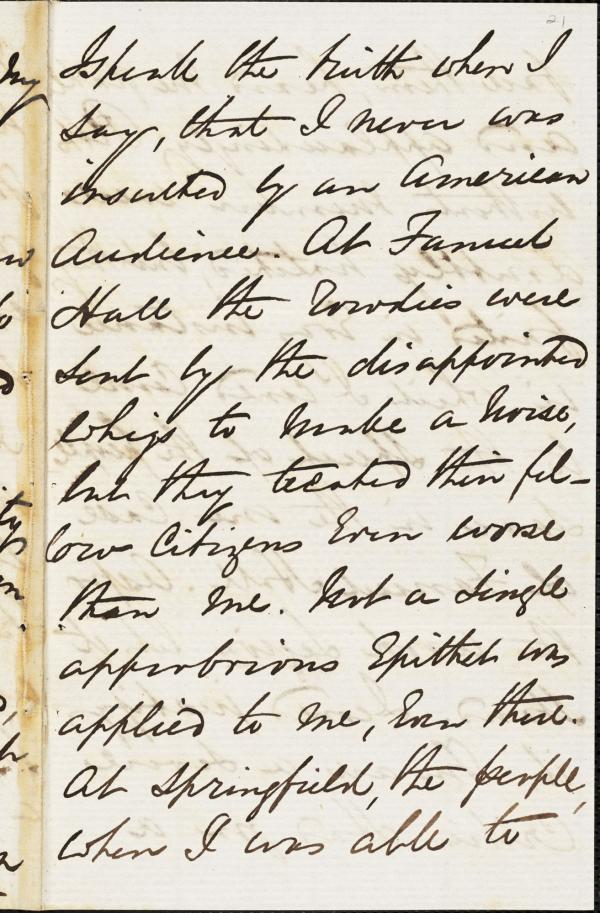 21
I speak the truth when I
say, that I never was
insulted by an American
Audience. At Fanueil
Hall the rowdies were
sent by the disappointed
Whigs to make a noise,
but they treated their fel-
lows Citizens Even worse
than me. Not a single
opprobrious Epithet was
applied to me, Even there.
At Springfield, the people,
when I was able to